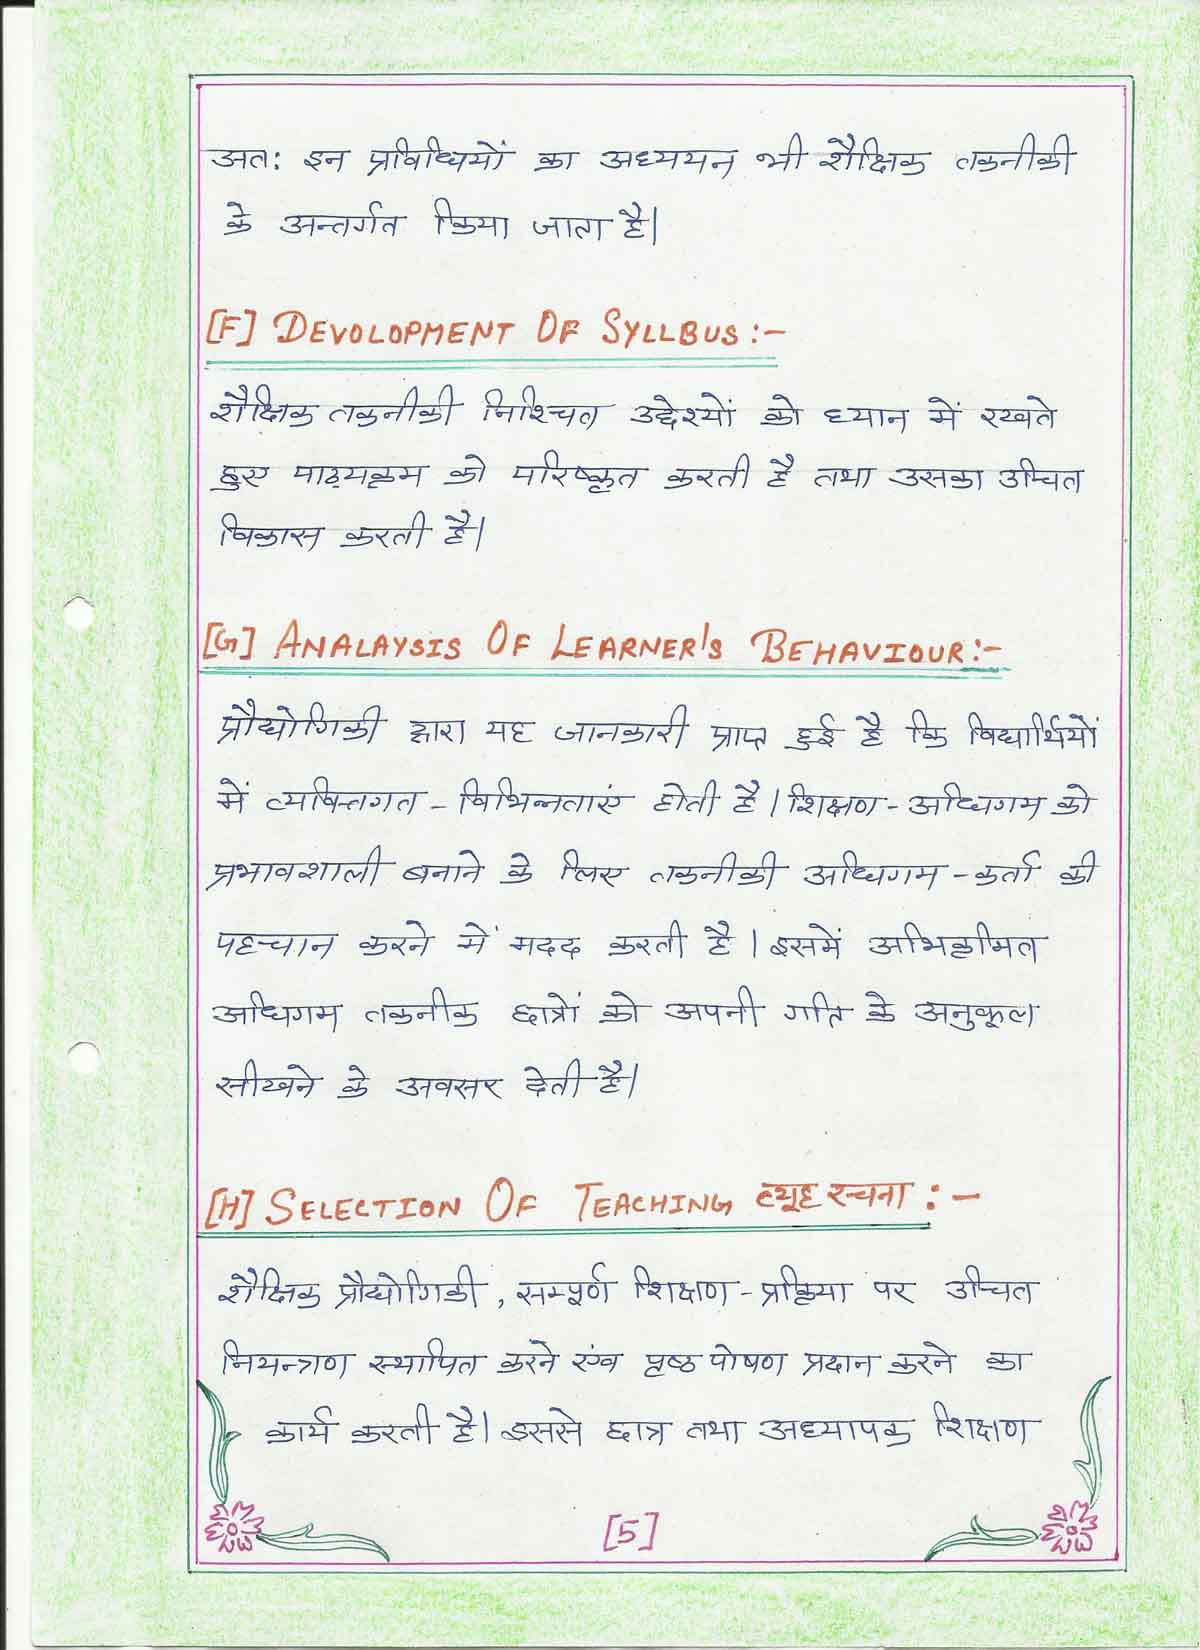 अत: इन प्रविधियों का अध्ययन भी शैक्षिक तकनीकी
के अन्तर्गत किया जाता है।
[F] DEVOLOPMENT OF SYLLBUS:-
शैक्षिक तकनीकी निश्चित उद्देश्यों को ध्यान में रखते
हुए पाठ्यक्रम को परिष्कृत करती है तथा उसका उचित
विकास करती है।
[G] ANALAYSIS OF LEARNER'S BEHAVIOUR:-
प्रौद्योगिकी द्वारा यह जानकारी प्राप्त हुई है कि विद्यार्थियों
में व्यक्तिगत - विभिन्नताएं होती है। शिक्षण - अधिगम को
प्रभावशाली बनाने के लिए तकनीकी अधिगम - कर्ता की
पहचान करने में मदद करती है। इसमें अभिक्रमित
अधिगम तकनीक छात्रों को अपनी गति के अनुकूल
सीखने के अवसर देती है।
[H] SELECTION OF TEACHING व्यूह रचना :-
शैक्षिक प्रौद्योगिकी, सम्पूर्ण शिक्षण - प्रक्रिया पर उचित
नियन्त्रण स्थापित करने एंव पृष्ठ पोषण प्रदान करने का
कार्य करती है। इससे छात्र तथा अध्यापक शिक्षण
[5]